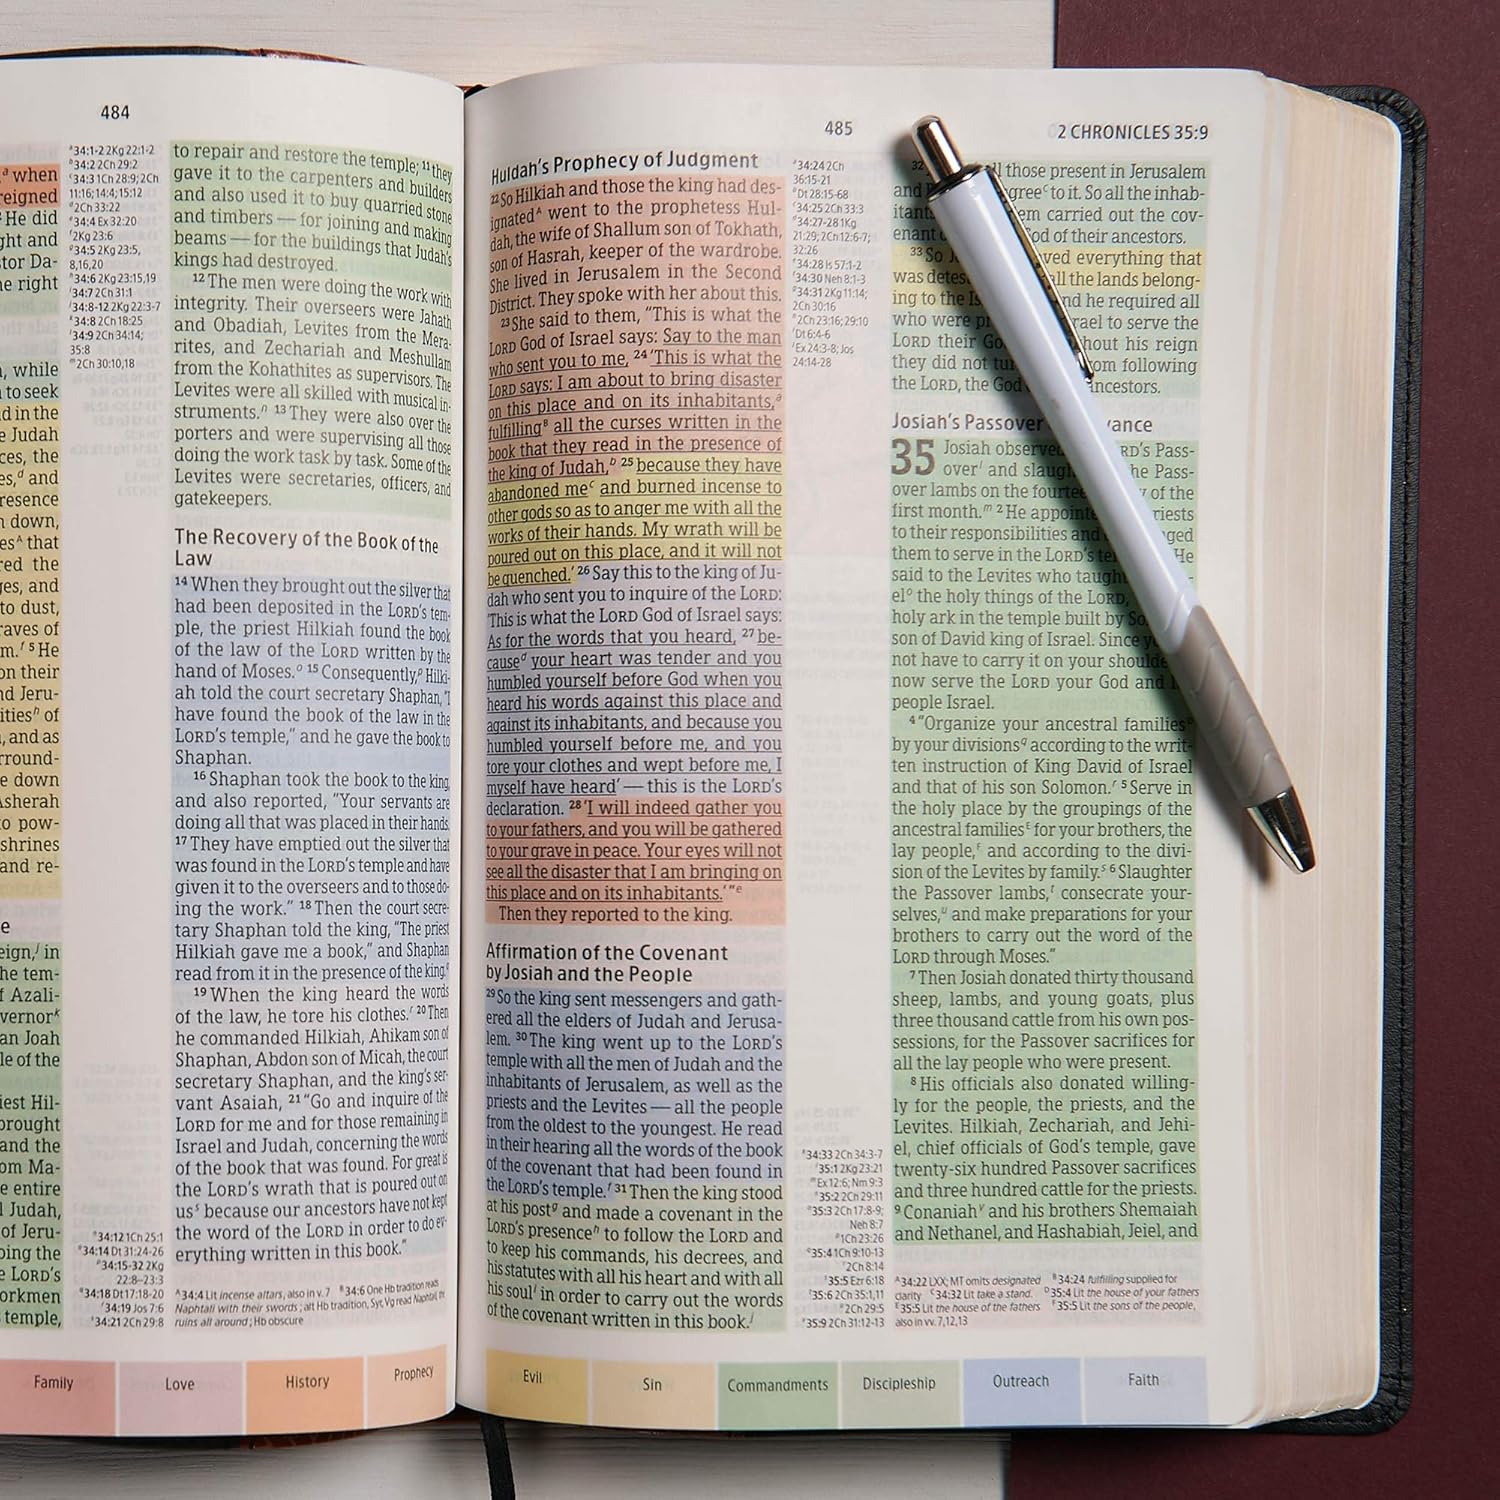 484
ᵃ when
reigned
He did
ght and
tor Da-
he right
, while
to seek
d in the
e Judah
ces, the
es,ᵈ and
resence
n down,
esᴬ that
red the
ges, and
to dust,
raves of
m.ᶠ ⁵ He
on their
nd Jeru-
itiesʰ of
, and as
rround-
e down
Asherah
to pow-
shrines
and re-
e
eign,ʲ in
he tem-
f Azali-
vernorᵏ
an Joah
le of the
iest Hil-
brought
and the
om Ma-
e entire
l Judah,
of Jeru-
oing the
e LORD's
orkmen
temple,
34:1-2 2Kg 22:1-2
34:2 2Ch 29:2
34:3 1Ch 28:9; 2Ch
11:16; 14:4; 15:12
2Ch 33:22
34:4 Ex 32:20
2Kg 23:6
34:5 2Kg 23:5,
8,16,20
34:6 2Kg 23:15,19
34:7 2Ch 31:1
34:8-12 2Kg 22:3-7
34:8 2Ch 18:25
34:9 2Ch 34:14;
35:8
ᵐ2Ch 30:10,18
34:12 1Ch 25:1
34:14 Dt 31:24-26
34:15-32 2Kg
22:8–23:3
34:18 Dt 17:18-20
34:19 Jos 7:6
34:21 2Ch 29:8
to repair and restore the temple; ¹¹ they
gave it to the carpenters and builders
and also used it to buy quarried stone
and timbers — for joining and making
beams — for the buildings that Judah's
kings had destroyed.
¹² The men were doing the work with
integrity. Their overseers were Jahath
and Obadiah, Levites from the Mera-
rites, and Zechariah and Meshullam
from the Kohathites as supervisors. The
Levites were all skilled with musical in-
struments.ⁿ ¹³ They were also over the
porters and were supervising all those
doing the work task by task. Some of the
Levites were secretaries, officers, and
gatekeepers.
The Recovery of the Book of the
Law
¹⁴ When they brought out the silver that
had been deposited in the LORD's tem-
ple, the priest Hilkiah found the book
of the law of the LORD written by the
hand of Moses.ᵒ ¹⁵ Consequently,ᵖ Hilki-
ah told the court secretary Shaphan, "I
have found the book of the law in the
LORD's temple," and he gave the book to
Shaphan.
¹⁶ Shaphan took the book to the king,
and also reported, "Your servants are
doing all that was placed in their hands.
¹⁷ They have emptied out the silver that
was found in the LORD's temple and have
given it to the overseers and to those do-
ing the work." ¹⁸ Then the court secre-
tary Shaphan told the king, "The priest
Hilkiah gave me a book," and Shaphan
read from it in the presence of the king.
¹⁹ When the king heard the words
of the law, he tore his clothes.ʳ ²⁰ Then
he commanded Hilkiah, Ahikam son of
Shaphan, Abdon son of Micah, the court
secretary Shaphan, and the king's ser-
vant Asaiah, ²¹ "Go and inquire of the
LORD for me and for those remaining in
Israel and Judah, concerning the words
of the book that was found. For great is
the LORD's wrath that is poured out on
usˢ because our ancestors have not kept
the word of the LORD in order to do ev-
erything written in this book."
ᴬ34:4 Lit incense altars, also in v. 7 ᴮ34:6 One Hb tradition reads
Naphtali with their swords; alt Hb tradition, Syr, Vg read Naphtali,
ruins all around; Hb obscure
Family Love History Prophecy
485
2 CHRONICLES 35:9
Huldah's Prophecy of Judgment
²² So Hilkiah and those the king had des-
ignatedᴬ went to the prophetess Hul-
dah, the wife of Shallum son of Tokhath,
son of Hasrah, keeper of the wardrobe.
She lived in Jerusalem in the Second
District. They spoke with her about this.
²³ She said to them, "This is what the
LORD God of Israel says: Say to the man
who sent you to me, ²⁴ 'This is what the
LORD says: I am about to bring disaster
on this place and on its inhabitants,ᵃ
fulfillingᴮ all the curses written in the
book that they read in the presence of
the king of Judah,ᵇ ²⁵ because they have
abandoned meᶜ and burned incense to
other gods so as to anger me with all the
works of their hands. My wrath will be
poured out on this place, and it will not
be quenched.' ²⁶ Say this to the king of Ju-
dah who sent you to inquire of the LORD:
'This is what the LORD God of Israel says:
As for the words that you heard, ²⁷ be-
causeᵈ your heart was tender and you
humbled yourself before God when you
heard his words against this place and
against its inhabitants, and because you
humbled yourself before me, and you
tore your clothes and wept before me, I
myself have heard' — this is the LORD's
declaration. ²⁸ 'I will indeed gather you
to your fathers, and you will be gathered
to your grave in peace. Your eyes will not
see all the disaster that I am bringing on
this place and on its inhabitants.' "ᵉ
Then they reported to the king.
Affirmation of the Covenant
by Josiah and the People
²⁹ So the king sent messengers and gath-
ered all the elders of Judah and Jerusa-
lem. ³⁰ The king went up to the LORD's
temple with all the men of Judah and the
inhabitants of Jerusalem, as well as the
priests and the Levites — all the people
from the oldest to the youngest. He read
in their hearing all the words of the book
of the covenant that had been found in
the LORD's temple.ᶠ ³¹ Then the king stood
at his postᵍ and made a covenant in the
LORD's presenceʰ to follow the LORD and
to keep his commands, his decrees, and
his statutes with all his heart and with all
his soulⁱ in order to carry out the words
of the covenant written in this book.ʲ
34:24 2Ch
36:15-21
Dt 28:15-68
34:25 2Ch 33:3
34:27-28 1Kg
21:29; 2Ch 12:6-7;
32:26
34:28 Is 57:1-2
34:30 Neh 8:1-3
34:31 2Kg 11:14;
2Ch 30:16
2Ch 23:16; 29:10
Dt 6:4-6
Ex 24:3-8; Jos
24:14-28
34:33 2Ch 34:3-7
35:1 2Kg 23:21
ᵐEx 12:6; Nm 9:3
35:2 2Ch 29:11
35:3 2Ch 17:8-9;
Neh 8:7
1Ch 23:26
35:4 1Ch 9:10-13
2Ch 8:14
35:5 Ezr 6:18
35:6 2Ch 35:1,11
2Ch 29:5
35:9 2Ch 31:12-13
32 ll those present in Jerusalem
and greeᶜ to it. So all the inhab-
itants em carried out the cov-
enant God of their ancestors.
³³ So ved everything that
was all the lands belong-
ing to the nd he required all
who were rael to serve the
LORD their hout his reign
they did not om following
the LORD, the God ancestors.
Josiah's Passover vance
35 Josiah observed RD's Pass-
overˡ and the Pass-
over lambs on the y of the
first month.ᵐ ² He riests
to their responsibilities and ged
them to serve in the LORD's He
said to the Levites who taught
elᵒ the holy things of the LORD,
holy ark in the temple built by
son of David king of Israel. Since
not have to carry it on your
now serve the LORD your God and
people Israel.
⁴ "Organize your ancestral familiesᴰ
by your divisions according to the writ-
ten instruction of King David of Israel
and that of his son Solomon.ʳ ⁵ Serve in
the holy place by the groupings of the
ancestral familiesᴱ for your brothers, the
lay people,ᶠ and according to the divi-
sion of the Levites by family.ˢ ⁶ Slaughter
the Passover lambs,ᵗ consecrate your-
selves,ᵘ and make preparations for your
brothers to carry out the word of the
LORD through Moses."
⁷ Then Josiah donated thirty thousand
sheep, lambs, and young goats, plus
three thousand cattle from his own pos-
sessions, for the Passover sacrifices for
all the lay people who were present.
⁸ His officials also donated willing-
ly for the people, the priests, and the
Levites. Hilkiah, Zechariah, and Jehi-
el, chief officials of God's temple, gave
twenty-six hundred Passover sacrifices
and three hundred cattle for the priests.
⁹ Conaniahᵛ and his brothers Shemaiah
and Nethanel, and Hashabiah, Jeiel, and
ᴬ34:22 LXX; MT omits designated ᴮ34:24 fulfilling supplied for
clarity ᶜ34:32 Lit take a stand. ᴰ35:4 Lit the house of your fathers
ᴱ35:5 Lit the house of the fathers ᶠ35:5 Lit the sons of the people,
also in vv. 7,12,13
Evil Sin Commandments Discipleship Outreach Faith